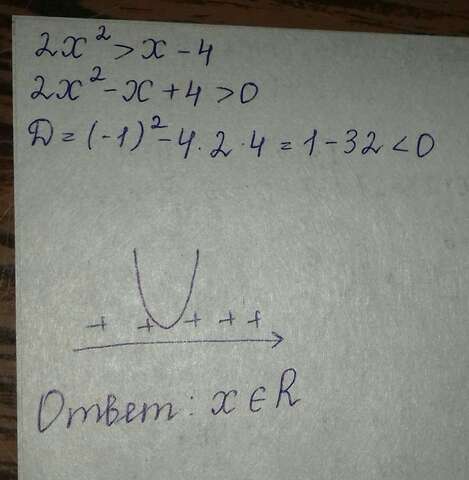 2x² > x - 4
2x² - x + 4 > 0
D = (-1)² - 4 · 2 · 4 = 1 - 32 < 0
+ + + + +
Ответ: x ∈ R